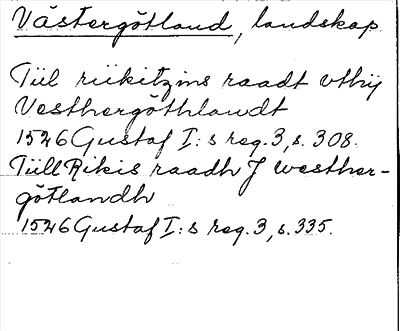 Västergötland, landskap.
Tiil riikitzins raadt vthij
Vesthergöthlandt
1526 Gustaf I:s reg. 3, s. 308.
Tiill Rikis raadh J westher-
götlandh
1526 Gustaf I:s reg. 3, s. 335.